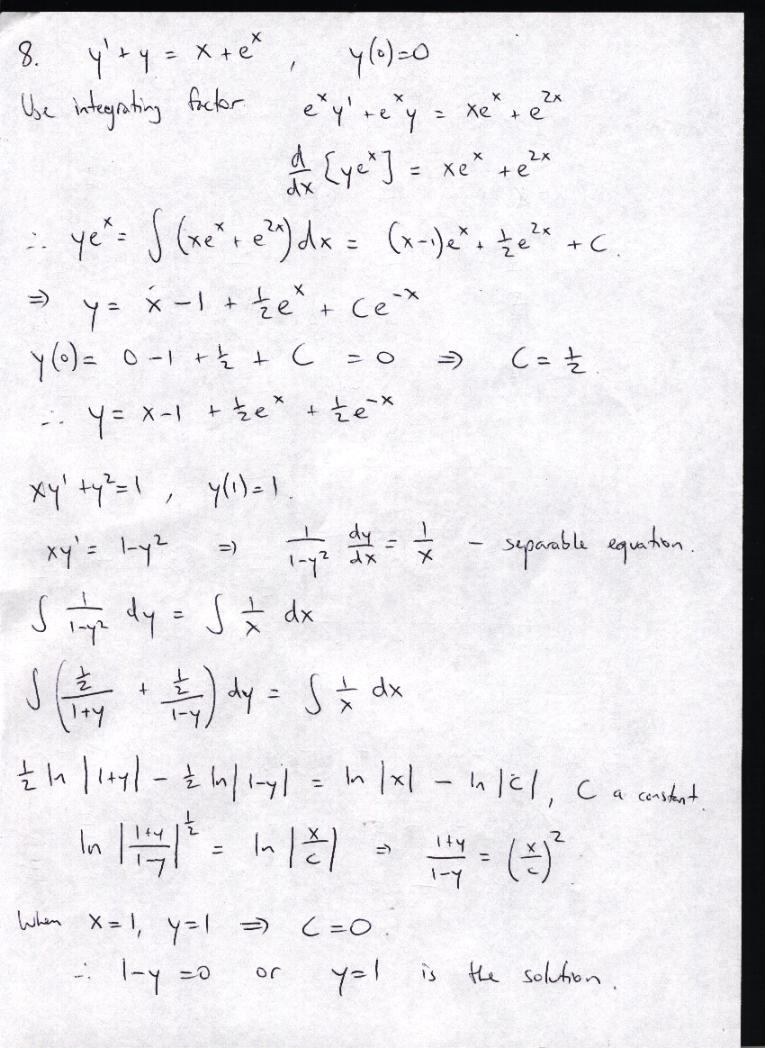 8. y' + y = x + eˣ , y(0)=0
Use integrating factor eˣy' + eˣy = xeˣ + e²ˣ
d/dx [yeˣ] = xeˣ + e²ˣ
∴ yeˣ = ∫ (xeˣ + e²ˣ) dx = (x-1)eˣ + ½e²ˣ + C.
⇒ y = x - 1 + ½eˣ + Ce⁻ˣ
y(0) = 0 - 1 + ½ + C = 0 ⇒ C = ½
∴ y = x - 1 + ½eˣ + ½e⁻ˣ
xy' + y² = 1 , y(1) = 1.
xy' = 1-y² ⇒ 1/(1-y²) dy/dx = 1/x - separable equation.
∫ 1/(1-y²) dy = ∫ 1/x dx
∫ (½/(1+y) + ½/(1-y)) dy = ∫ 1/x dx
½ ln |1+y| - ½ ln |1-y| = ln |x| - ln |c|, C a constant.
ln |(1+y)/(1-y)|^½ = ln |x/c| ⇒ (1+y)/(1-y) = (x/c)²
When x = 1, y = 1 ⇒ C = 0.
∴ 1-y = 0 or y = 1 is the solution.